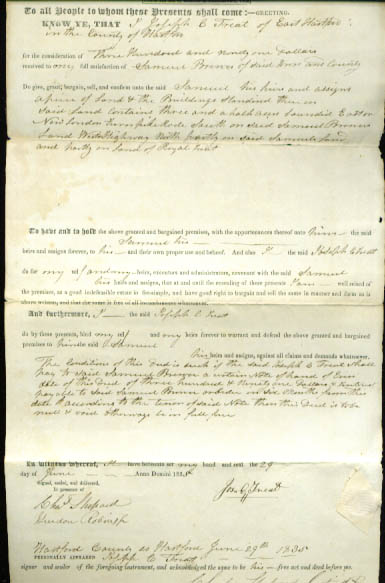 To all People to whom these Presents shall come:—GREETING.
KNOW YE, THAT I Joseph C Treat of East Hartford
in the County of Hartford
for the consideration of Three Hundred and ninety one Dollars
received to my full satisfaction of Samuel Brown of said Town and County
Do give, grant, bargain, sell, and confirm unto the said Samuel his heirs and assigns
a piece of Land & the Buildings Standing there on
said Land contains three and a half acres bounded East on
New London Turnpike Road South on said Samuel Browns
Land West Highway North partly on said Samuels Land
and partly on land of Royal Treat
To have and to hold the above granted and bargained premises, with the appurtenances thereof unto him the said
Samuel his
heirs and assigns forever, to his and their own proper use and behoof. And also I the said Joseph C Treat
do for my self and my heirs, executors and administrators, covenant with the said Samuel
his heirs and assigns, that at and until the ensealing of these presents I am well seized of
the premises, as a good indefeasible estate in fee-simple, and have good right to bargain and sell the same in manner and form as is
above written; and that the same is free of all incumbrances whatsoever.
And furthermore, I the said Joseph C Treat
do by these presents, bind my self and my heirs forever to warrant and defend the above granted and bargained
premises to him the said Samuel
his heirs and assigns, against all claims and demands whatsoever.
The Condition of this Deed is such if the said Joseph C Treat shall
pay to said Samuel Brown a certain Note of hand of Even
date of this Deed of three hundred & Ninety one Dollars &
payable to said Samuel Brown or order on Six Months from this
date & according to the tenor of said Note then this Deed is to be
null & void otherways to be in full force
In witness whereof, I have hereunto set my hand and seal the 29
day of June Anno Domini 183
Signed, sealed, and delivered,
in presence of
Jos. C Treat
Chas. Shepard
Hartford County ss Hartford June 29th 1835
PERSONALLY APPEARED Joseph C Treat
signer and sealer of the foregoing instrument, and acknowledged the same to be his free act and deed before me.